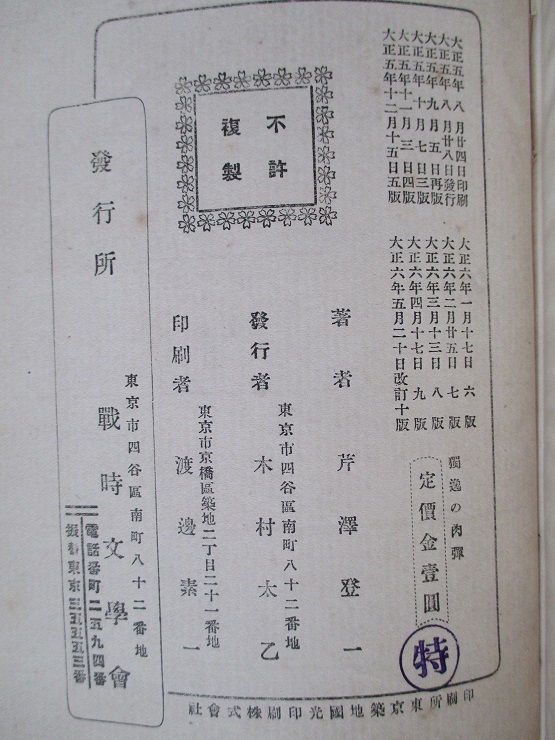 大正五年八月廿四日印刷
大正五年八月廿八日發行
大正五年九月五日再版
大正五年十月七日三版
大正五年十一月三日四版
大正五年十二月十五日五版
大正六年一月十七日六版
大正六年二月廿五日七版
大正六年三月十三日八版
大正六年四月十七日九版
大正六年五月二十日改訂十版
獨逸の肉彈
定價金壹圓
特
不許
複製
著者 芹澤登一
東京市四谷區南町八十二番地
發行者 木村太乙
東京市京橋區築地二丁目二十一番地
印刷者 渡邊素一
印刷所 東京築地國光印刷株式會社
發行所
東京市四谷區南町八十二番地
戰時文學會
電話番町二五九四番
振替東京三五五五三番